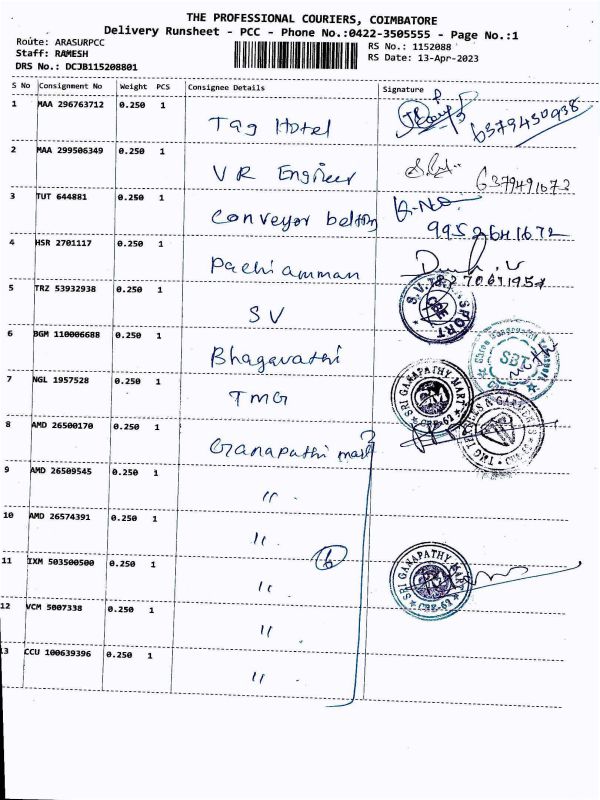 THE PROFESSIONAL COURIERS, COIMBATORE
Delivery Runsheet - PCC - Phone No.:0422-3505555 - Page No.:1
Route: ARASURPCC
Staff: RAMESH
DRS No.: DCJB115208801
RS No.: 1152088
RS Date: 13-Apr-2023
S No Consignment No Weight PCS Consignee Details Signature
1 MAA 296763712 0.250 1 Tag Hotel 6379430938
2 MAA 299506349 0.250 1 VR Engineer 6379491672
3 TUT 644881 0.250 1 Conveyor belting 9952641672
4 HSR 2701117 0.250 1 Pachiamman
5 TRZ 53932938 0.250 1 SV
S.V. TRANSPORT
6 BGM 110006688 0.250 1 Bhagavathi
SBT
7 NGL 1957528 0.250 1 TMG
SRI GANAPATHY MART
CBE-62
8 AMD 26500170 0.250 1 Ganapathi mart
9 AMD 26509545 0.250 1 "
10 AMD 26574391 0.250 1 "
6
11 IXM 503500500 0.250 1 "
SRI GANAPATHY MART
CBE-62
12 VCM 5007338 0.250 1 "
13 CCU 100639396 0.250 1 "